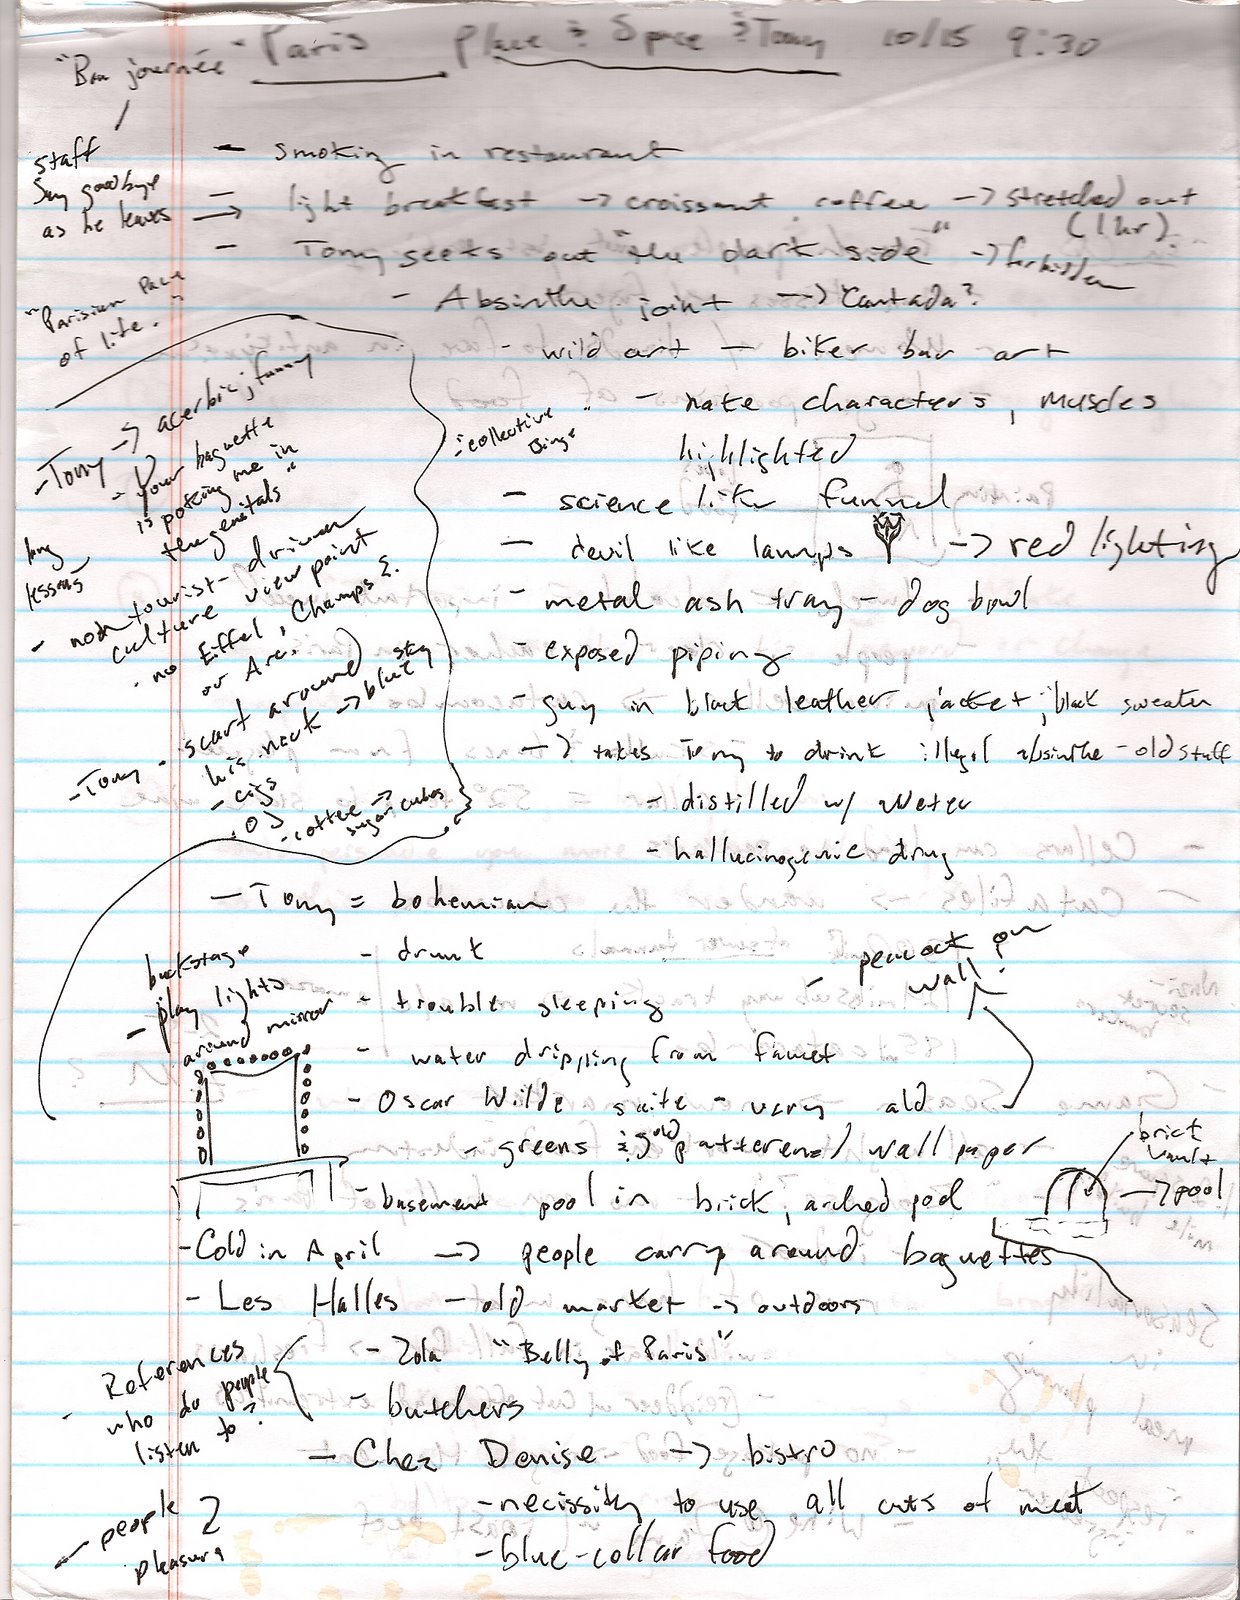 Paris Place & Space & Tony 10/15 9:30
"Bon journée"
staff
say goodbye
as he leaves →
- smoking in restaurant
- light breakfast → croissant, coffee → stretched out
(1 hr)
- Tony seeks out "the dark side" → forbidden
"Parisian Pace
of life."
- Absinthe joint → Cantada?
- wild art - biker bar art
"collective
Binge"
- nake characters, muscles
highlighted
- science like funnel
- devil like lamps → red lighting
- metal ash tray - dog bowl
- exposed piping
- guy in black leather jacket, black sweater
→ takes Tony to drink illegal absinthe - old stuff
- distilled w/ water
- hallucinogenic drug
- Tony → acerbic, funny
- "your baguette
is poking me in
the genitals"
long
lessons
- non tourist-driven
culture viewpoint
- no Eiffel, Champs E.
or Arc.
- Tony - scarf around
his neck → blue
- cigs
- OJ
- coffee → sugar cubes
- Tony = bohemian
- drunk
- trouble sleeping
- water dripping from faucet
- Oscar Wilde suite - very old
- peacock on
wall?
- greens & gold patterened wallpaper
backstage
- play lights
around mirror
- basement pool in brick, arched pod
brick
vault
→ pool
- Cold in April → people carry around baguettes
- Les Halles - old market → outdoors
- Zola "Belly of Paris"
- butchers
- References
who do people
listen to?
- Chez Denise → bistro
- necissity to use all cuts of meat
- blue-collar food
- people 2
pleasure